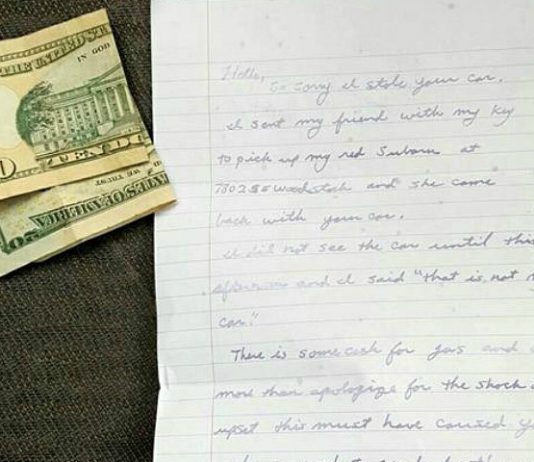 THE UNITED STA
IN GOD
TEN DO
WE TRUST
ES OF AMERICA
Hello,
So sorry I stole your car.
I sent my friend with my key
to pick up my red Subaru at
7802 SE Woodstock and she came
back with your car.
I did not see the car until this
afternoon and I said "that is not m
car."
There is some cash for gas and
more than apologize for the shock a
upset this must have caused y